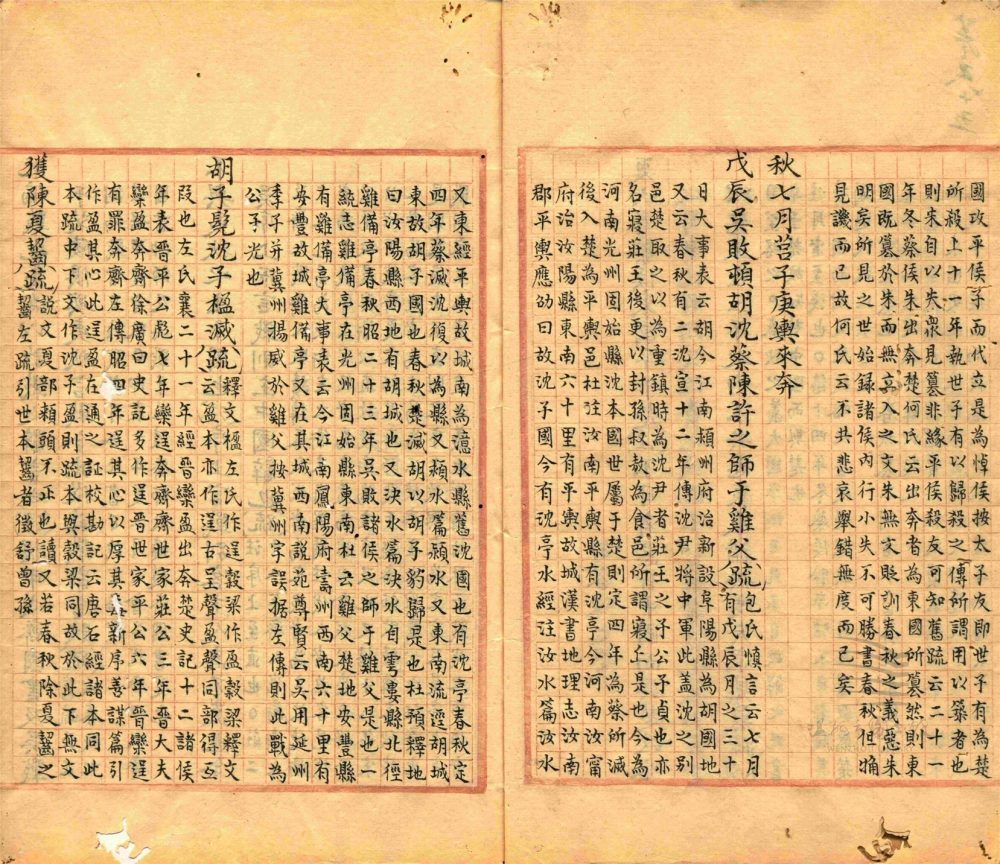 國攻平侯子而代立是為悼侯按太子友即世子有為楚
所殺上十一年執世子有以歸殺之傳所謂用以築者也
則朱自以失衆見篡非緣平侯殺友可知舊疏云二十一
年冬蔡侯朱出奔楚何氏云出奔者為東國所篡然則東
國既篡於朱而無立入之文朱無文貶訓春秋之義惡朱
明矣所見之世始録諸侯內行小失不可勝書春秋但觕
見譏而已故何氏云不共悲哀舉錯無度而已矣
秋七月莒子庚輿來奔
戊辰吳敗頓胡沈蔡陳許之師于雞父疏
包氏慎言云七月
有戊辰月之三十
日大事表云胡今江南潁州府治新設阜陽縣為胡國地
又云春秋有二沈宣十二年傳沈尹將中軍此蓋沈之别
邑楚取之以為重鎮時為沈尹者莊王之子公子貞也亦
名寢莊王後更以封孫叔敖為食邑所謂寢丘是也今為
河南光州固始縣沈本世國世屬於楚則定四年為蔡所滅
後入楚為平輿邑杜注汝南平輿縣有沈亭今河南汝甯
府治汝陽縣東南六十里有平輿故城漢書地理志汝南
郡平輿應劭曰故沈子國今有沈亭水經注汝水篇汝水
又東經平輿故城南為澺水縣舊沈國也有沈亭春秋定
四年蔡滅沈復以為縣又潁水篇潁水又東南流逕胡城
東故胡子國也春秋楚滅胡以胡子豹歸是也杜預釋地
曰汝陽縣西地有胡城也又決水篇決水自雩婁縣北徑
雞備亭春秋昭二十三年吳敗諸侯之師于雞父是也一
統志雞備亭在光州固始縣東南杜云雞父楚地安豐縣
有雞備亭大事表云今江南鳳陽府壽州西南六十里有
安豐故城雞備亭又在其城西南說苑尊賢云吳用延州
季子并冀州揚威於雞父按冀州字誤据左傳則此戰為
公子光也
胡子髡沈子楹滅疏
釋文楹左氏作逞穀梁作盈穀梁釋文
云盈本亦作逞古呈聲盈聲同部得叚
叚也左氏襄二十一年經晉欒盈出奔楚史記十二諸侯
年表晉平公彪七年欒逞奔齊齊世家莊公三年晉大夫
欒盈奔齊徐廣曰史記多作逞晉世家平公六年晉欒逞
有罪奔齊左傳昭四年逞其心以厚其毒新序善謀篇引
作盈其心此逞盈在通之証校勘記云唐石經諸本同此
本疏中下文作沈子盈則疏本與穀梁同故於此下無文
獲陳夏齧疏
說文夏部頛頭不正也讀又若春秋陳夏齧之
齧左疏引世本齧者徵舒曾孫